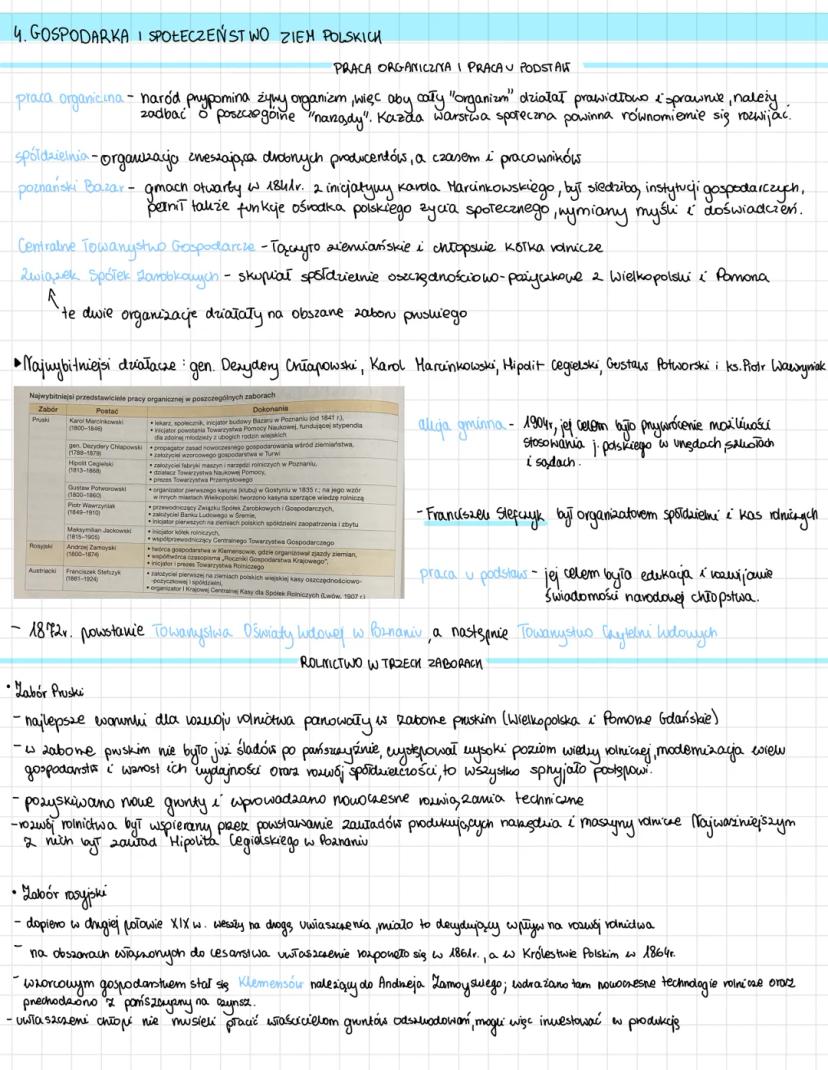 4. GOSPODARKA I SPOŁECZEŃSTWO ZIEM POLSKICH
PRACA ORGANICZNA I PRACA U PODSTAW
praca organiczna - naród przypomina żywy organizm, więc aby cały "organizm" działał prawidłowo i sprawnie, należy
zadbać o poszczególne "narządy". Każda warstwa społeczna powinna równomiernie się rozwijać.
spółdzielnia - organizacja zrzeszająca drobnych producentów, a czasem i pracowników
poznański Bazar - gmach otwarty w 1841r. z inicjatywy Karola Marcinkowskiego, był siedzibą instytucji gospodarczych,
pełnił także funkcje ośrodka polskiego życia społecznego, wymiany myśli i doświadczeń.
Centralne Towarzystwo Gospodarcze - łączyło ziemiańskie i chłopskie kółka rolnicze
Związek Spółek Zarobkowych - skupiał spółdzielnie oszczędnościowo-pożyczkowe z Wielkopolski i Pomorza
te dwie organizacje działały na obszarze zaboru pruskiego
▸Najwybitniejsi działacze: gen. Dezydery Chłapowski, Karol Marcinkowski, Hipolit Cegielski, Gustaw Potworski i ks. Piotr Wawrzyniak
Najwybitniejsi przedstawiciele pracy organicznej w poszczególnych zaborach
Zabór Postać Dokonania
Pruski Karol Marcinkowski (1800–1846)
• lekarz, społecznik, inicjator budowy Bazaru w Poznaniu (od 1841 r.),
• inicjator powstania Towarzystwa Pomocy Naukowej, fundującej stypendia
dla zdolnej młodzieży z ubogich rodzin wiejskich
gen. Dezydery Chłapowski (1788–1879)
• propagator zasad nowoczesnego gospodarowania wśród ziemiaństwa,
• założyciel wzorcowego gospodarstwa w Turwi
Hipolit Cegielski (1813–1868)
• założyciel fabryki maszyn i narzędzi rolniczych w Poznaniu,
• działacz Towarzystwa Naukowej Pomocy,
• prezes Towarzystwa Przemysłowego
Gustaw Potworowski (1800–1860)
• organizator pierwszego kasyna (klubu) w Gostyniu w 1835 r.; na jego wzór
w innych miastach Wielkopolski tworzono kasyna szerzące wiedzę rolniczą
Piotr Wawrzyniak (1849–1910)
• przewodniczący Związku Spółek Zarobkowych i Gospodarczych,
• założyciel Banku Ludowego w Śremie,
• inicjator pierwszych na ziemiach polskich spółdzielni zaopatrzenia i zbytu
Maksymilian Jackowski (1815–1905)
• inicjator kółek rolniczych,
• współprzewodniczący Centralnego Towarzystwa Gospodarczego
Rosyjski Andrzej Zamoyski (1800–1874)
• twórca gospodarstwa w Klemensowie, gdzie organizował zjazdy ziemian,
• współtwórca czasopisma „Roczniki Gospodarstwa Krajowego”,
• inicjator i prezes Towarzystwa Rolniczego
Austriacki Franciszek Stefczyk (1861–1924)
• założyciel pierwszej na ziemiach polskich wiejskiej kasy oszczędnościowo-
-pożyczkowej i spółdzielni,
• organizator I Krajowej Centralnej Kasy dla Spółek Rolniczych (Lwów, 1907 r.)
akcja gminna - 1904r, jej celem było przywrócenie możliwości
stosowania j. polskiego w urzędach, szkołach
i sądach.
- Franciszek Stefczyk był organizatorem spółdzielni i kas rolniczych
praca u podstaw - jej celem była edukacja i rozwijanie
świadomości narodowej chłopstwa.
- 1872r. powstanie Towarzystwa Oświaty Ludowej w Poznaniu, a następnie Towarzystwo Czytelni Ludowych
ROLNICTWO W TRZECH ZABORACH
• Zabór Pruski
- najlepsze warunki dla rozwoju rolnictwa panowały w zaborze pruskim (Wielkopolska i Pomorze Gdańskie)
- w zaborze pruskim nie było już śladów po pańszczyźnie, występował wysoki poziom wiedzy rolniczej, modernizacja wielu
gospodarstw i wzrost ich wydajności oraz rozwój spółdzielczości, to wszystko sprzyjało postępowi.
- pozyskiwano nowe grunty i wprowadzano nowoczesne rozwiązania techniczne
- rozwój rolnictwa był wspierany przez powstawanie zakładów produkujących narzędzia i maszyny rolnicze Najważniejszym
z nich był zakład Hipolita Cegielskiego w Poznaniu
• Zabór rosyjski
- dopiero w drugiej połowie XIX w. weszły na drogę uwłaszczenia, miało to decydujący wpływ na rozwój rolnictwa
- na obszarach włączonych do cesarstwa uwłaszczenie rozpoczęło się w 1861r., a w Królestwie Polskim w 1864r.
- wzorcowym gospodarstwem stał się Klemensów należący do Andrzeja Zamoyskiego; wdrażano tam nowoczesne technologie rolnicze oraz
przechodzono z pańszczyzny na czynsz.
- uwłaszczeni chłopi nie musieli płacić właścicielom gruntów odszkodowań, mogli więc inwestować w produkcję